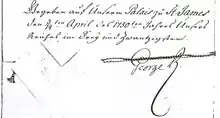 Gegeben auf Unserm Palais zu St James
den 24ten April des 1750ten Jahres Unsers
Reichs im Drey und Zwantzigsten.
George R